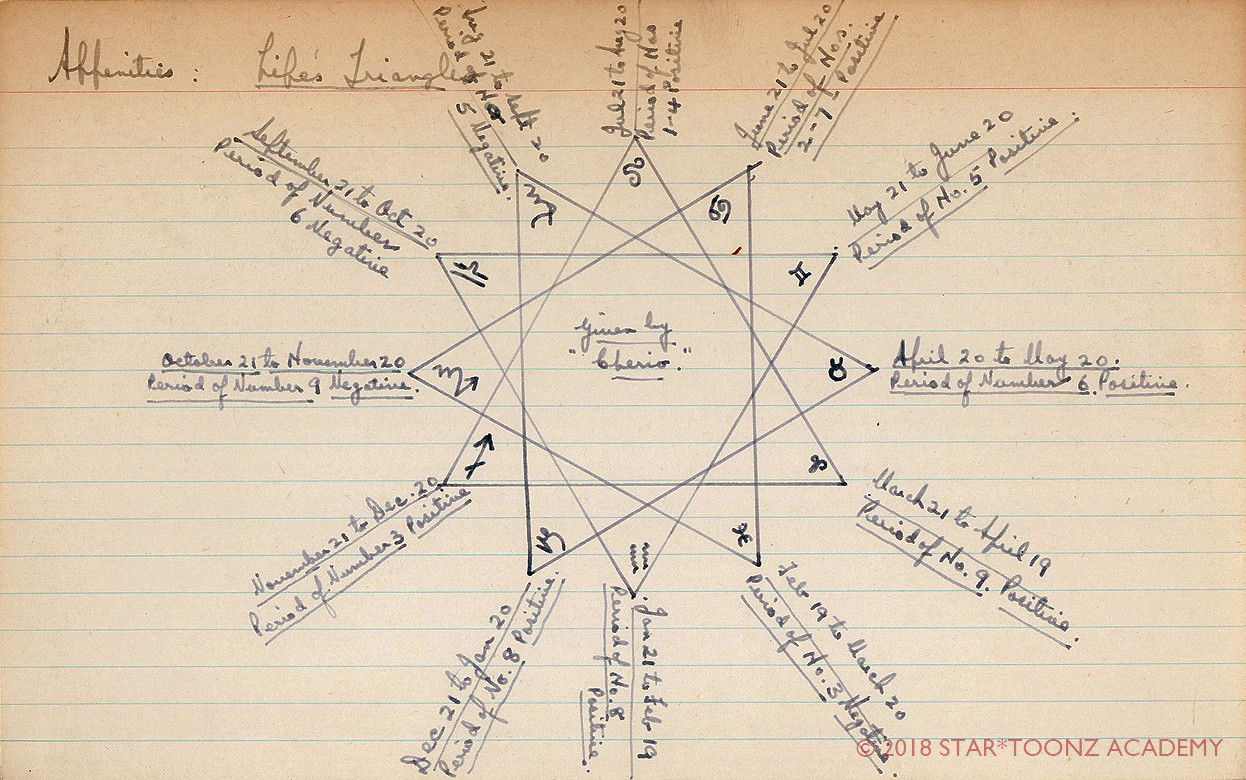 Affenities : Life's Triangles
Aug 21 to Sept 20
Period of No
5 Negative.
Jul 21 to Aug 20
Period of Nos
1-4 Positive
June 21 to Jul 20
Period of Nos.
2-7 Positive
May 21 to June 20
Period of No. 5 Positive.
September 21 to Oct 20
Period of Number
6 Negative
Given by
"Cherio."
October 21 to November 20
Period of Number 9 Negative.
April 20 to May 20.
Period of Number 6 Positive.
November 21 to Dec. 20
Period of Number 3 Positive
March 21 to April 19
Period of No. 9. Positive.
Dec 21 to Jan 20
Period of No. 8 Positive.
Jan 21 to Feb 19
Period of No. 8
Positive.
Feb 19 to March 20
Period of No. 3 Negative.
© 2018 STAR*TOONZ ACADEMY